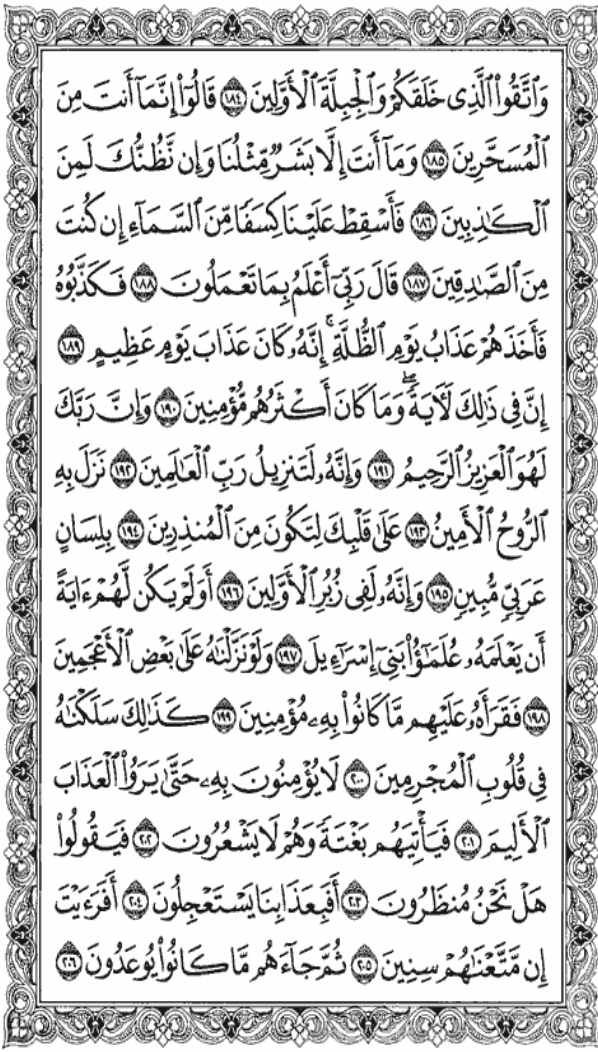 وَٱتَّقُوا۟ ٱلَّذِى خَلَقَكُمْ وَٱلْجِبِلَّةَ ٱلْأَوَّلِينَ ١٨٤ قَالُوٓا۟ إِنَّمَآ أَنتَ مِنَ
ٱلْمُسَحَّرِينَ ١٨٥ وَمَآ أَنتَ إِلَّا بَشَرٌ مِّثْلُنَا وَإِن نَّظُنُّكَ لَمِنَ
ٱلْكَٰذِبِينَ ١٨٦ فَأَسْقِطْ عَلَيْنَا كِسَفًا مِّنَ ٱلسَّمَآءِ إِن كُنتَ
مِنَ ٱلصَّٰدِقِينَ ١٨٧ قَالَ رَبِّىٓ أَعْلَمُ بِمَا تَعْمَلُونَ ١٨٨ فَكَذَّبُوهُ
فَأَخَذَهُمْ عَذَابُ يَوْمِ ٱلظُّلَّةِ ۚ إِنَّهُۥ كَانَ عَذَابَ يَوْمٍ عَظِيمٍ ١٨٩
إِنَّ فِى ذَٰلِكَ لَءَايَةً ۖ وَمَا كَانَ أَكْثَرُهُم مُّؤْمِنِينَ ١٩٠ وَإِنَّ رَبَّكَ
لَهُوَ ٱلْعَزِيزُ ٱلرَّحِيمُ ١٩١ وَإِنَّهُۥ لَتَنزِيلُ رَبِّ ٱلْعَٰلَمِينَ ١٩٢ نَزَلَ بِهِ
ٱلرُّوحُ ٱلْأَمِينُ ١٩٣ عَلَىٰ قَلْبِكَ لِتَكُونَ مِنَ ٱلْمُنذِرِينَ ١٩٤ بِلِسَانٍ
عَرَبِىٍّ مُّبِينٍ ١٩٥ وَإِنَّهُۥ لَفِى زُبُرِ ٱلْأَوَّلِينَ ١٩٦ أَوَلَمْ يَكُن لَّهُمْ ءَايَةً
أَن يَعْلَمَهُۥ عُلَمَٰٓؤُا۟ بَنِىٓ إِسْرَٰٓءِيلَ ١٩٧ وَلَوْ نَزَّلْنَٰهُ عَلَىٰ بَعْضِ ٱلْأَعْجَمِينَ
١٩٨ فَقَرَأَهُۥ عَلَيْهِم مَّا كَانُوا۟ بِهِۦ مُؤْمِنِينَ ١٩٩ كَذَٰلِكَ سَلَكْنَٰهُ
فِى قُلُوبِ ٱلْمُجْرِمِينَ ٢٠٠ لَا يُؤْمِنُونَ بِهِۦ حَتَّىٰ يَرَوُا۟ ٱلْعَذَابَ
ٱلْأَلِيمَ ٢٠١ فَيَأْتِيَهُم بَغْتَةً وَهُمْ لَا يَشْعُرُونَ ٢٠٢ فَيَقُولُوا۟
هَلْ نَحْنُ مُنظَرُونَ ٢٠٣ أَفَبِعَذَابِنَا يَسْتَعْجِلُونَ ٢٠٤ أَفَرَءَيْتَ
إِن مَّتَّعْنَٰهُمْ سِنِينَ ٢٠٥ ثُمَّ جَآءَهُم مَّا كَانُوا۟ يُوعَدُونَ ٢٠٦